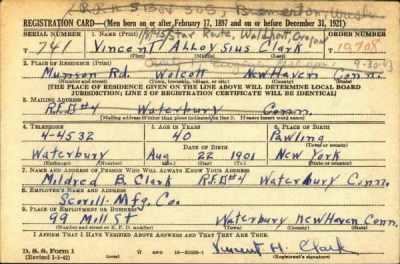 U.S.S. Bremerton, Wash
REGISTRATION CARD—(Men born on or after February 17, 1897 and on or before December 31, 1921)
SERIAL NUMBER 1. NAME (Print) Star Route, Waldport, Oregon ORDER NUMBER
T 741 Vincent Alloysius Clark 10,708
(First) (Middle) (Last)
2. PLACE OF RESIDENCE (Print) 9-20-43
Munson Rd. Wolcott New Haven Conn.
(Number and street) (Town, township, village, or city) (County) (State)
[THE PLACE OF RESIDENCE GIVEN ON THE LINE ABOVE WILL DETERMINE LOCAL BOARD
JURISDICTION; LINE 2 OF REGISTRATION CERTIFICATE WILL BE IDENTICAL]
3. MAILING ADDRESS
RFD#4 Waterbury Conn.
[Mailing address if other than place indicated on line 2. If same insert word same]
4. TELEPHONE 5. AGE IN YEARS 6. PLACE OF BIRTH
4-4532 40 Pawling
DATE OF BIRTH (Town or county)
Waterbury Aug 22 1901 New York
(Exchange) (Number) (Mo.) (Day) (Yr.) (State or country)
7. NAME AND ADDRESS OF PERSON WHO WILL ALWAYS KNOW YOUR ADDRESS
Mildred B. Clark RFD#4 Waterbury Conn.
8. EMPLOYER'S NAME AND ADDRESS
Scovill Mfg. Co.
9. PLACE OF EMPLOYMENT OR BUSINESS
99 Mill St Waterbury New Haven Conn.
(Number and street or R. F. D. number) (Town) (County) (State)
I AFFIRM THAT I HAVE VERIFIED ABOVE ANSWERS AND THAT THEY ARE TRUE.
D. S. S. Form 1
(Revised 1-1-42) GPO 16-21630-1 Vincent A. Clark
(Registrant's signature)